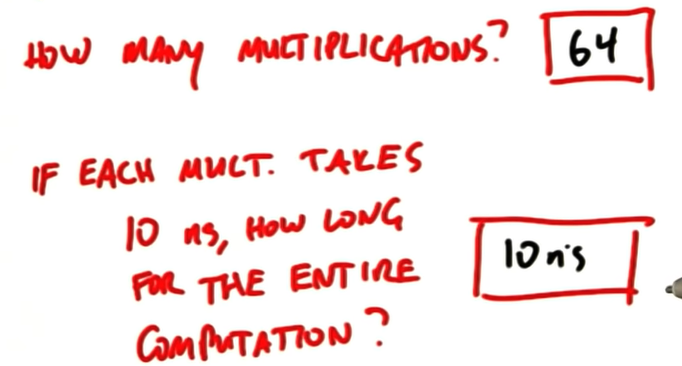 HOW MANY MULTIPLICATIONS? 64
IF EACH MULT. TAKES
10 ns, HOW LONG
FOR THE ENTIRE
COMPUTATION?
10 ns